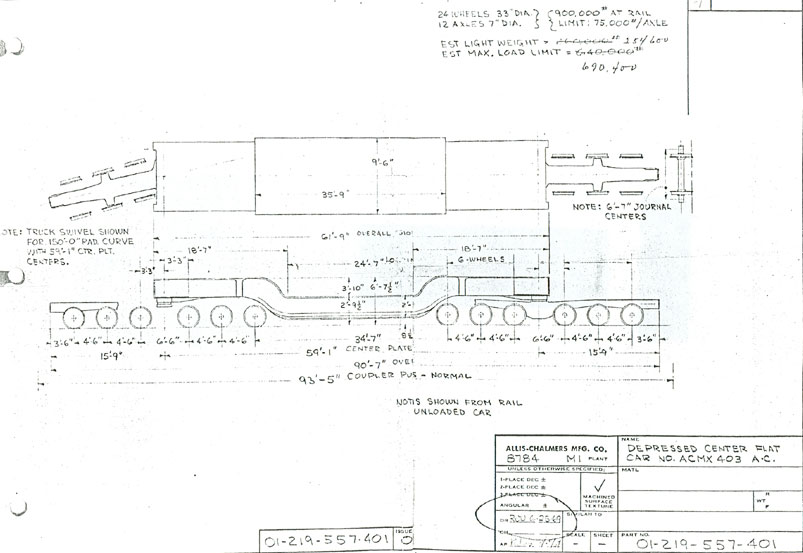 24 WHEELS 33" DIA. } { 900,000# AT RAIL
12 AXLES 7" DIA. } { LIMIT: 75,000#/AXLE
EST LIGHT WEIGHT =
EST MAX. LOAD LIMIT = 640,000#
690,400
9'-6"
35'-9"
NOTE: 6'-7" JOURNAL
CENTERS
OTE: TRUCK SWIVEL SHOWN
FOR 150'-0" RAD. CURVE
WITH 59'-1" CTR. PLT.
CENTERS.
61'-9" OVERALL
18'-7" 18'-7"
3'-3" 3'-3" 24'-7" 6-WHEELS
3'-10" 6'-7½"
2'-9½"
3'-6" 4'-6" 4'-6" 6'-6" 4'-6" 4'-6" 34'-7" 4'-6" 4'-6" 6'-6" 4'-6" 4'-6" 3'-6"
15'-9" 59'-1" CENTER PLATE 15'-9"
90'-7" OVE
93'-5" COUPLER - NORMAL
SHOWN FROM RAIL
UNLOADED CAR
ALLIS-CHALMERS MFG. CO.
8784 M1 PLANT
UNLESS OTHERWISE SPECIFIED
1-PLACE DEC ±
2-PLACE DEC ±
3-PLACE DEC ±
ANGULAR ±
MACHINED
SURFACE
TEXTURE
NAME
DEPRESSED CENTER FLAT
CAR NO. ACMX 403 A.C.
MATL
WT
SIMILAR TO
SCALE SHEET
- -
PART NO.
01-219-557-401
01-219-557-401
ISSUE
0